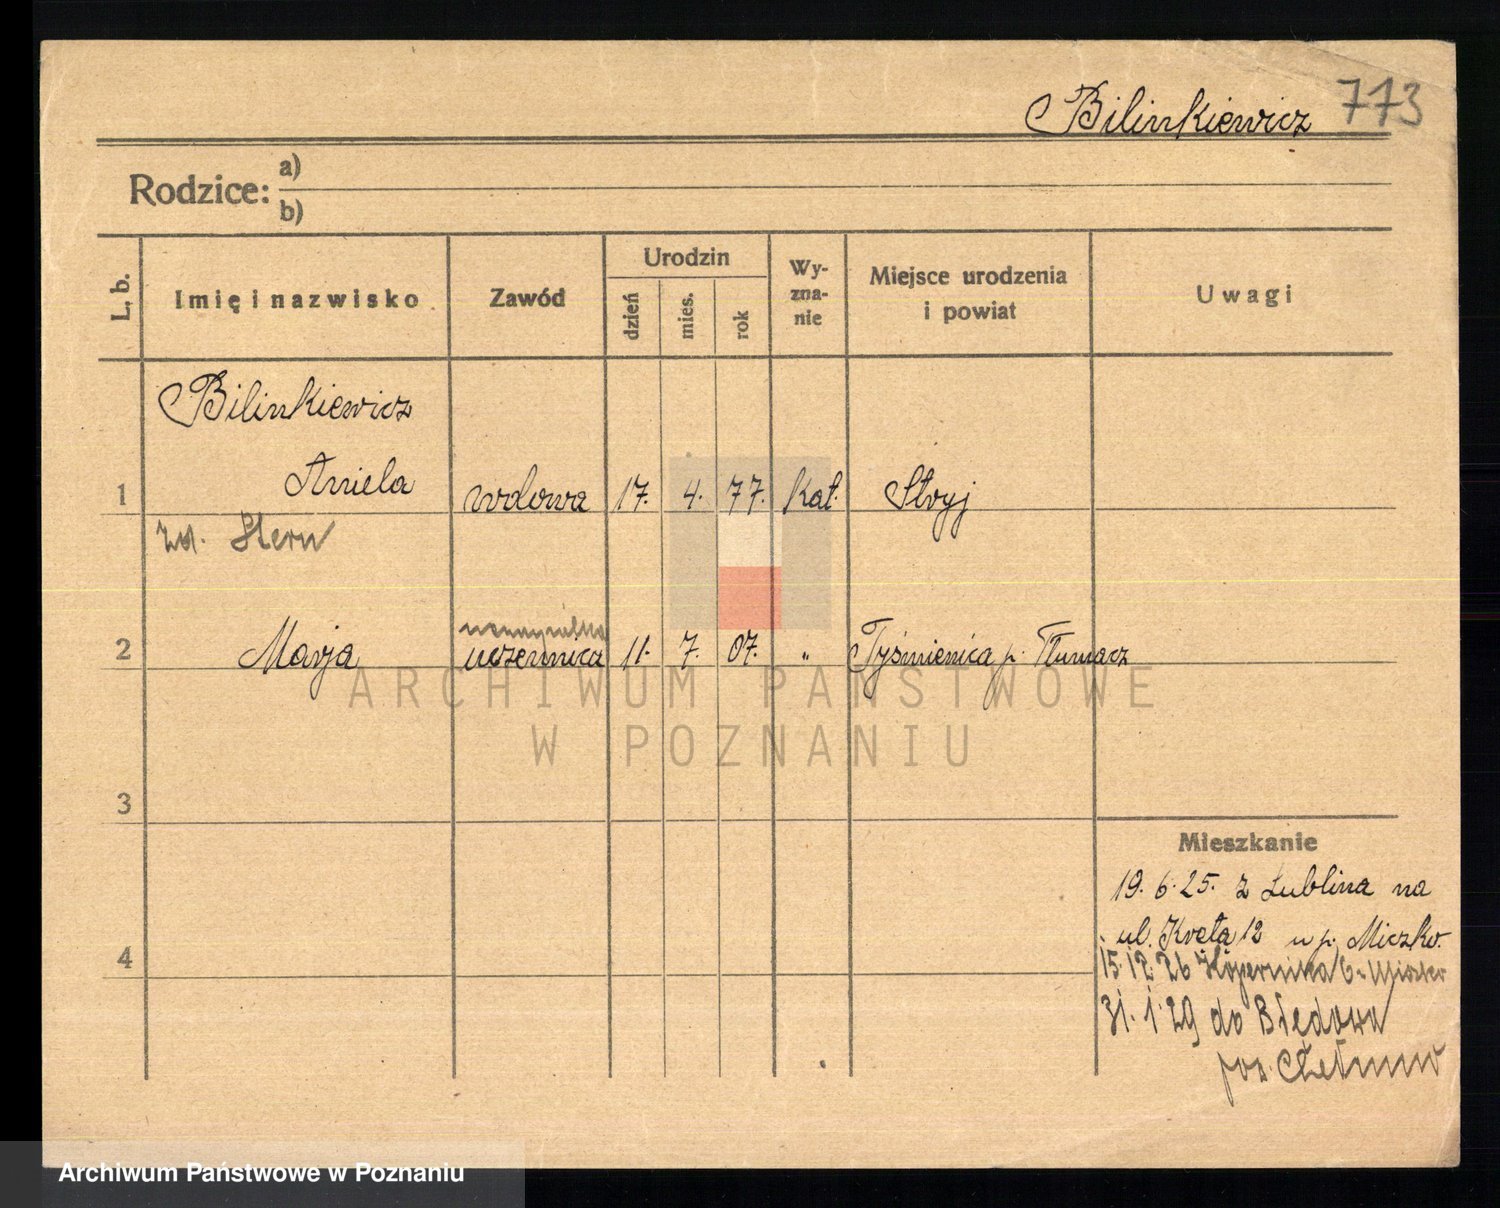 Bilinkiewicz 773
Rodzice: a)
b)
L. b.
Imię i nazwisko
Zawód
Urodzin
dzień
mies.
rok
Wy-
zna-
nie
Miejsce urodzenia
i powiat
Uwagi
Bilinkiewicz
1 Aniela wdowa 17. 4. 77. Kat. Stryj
zd. Stern
2 Marja uczennica 11. 7. 07. „ Tyśmienica p. Tłumacz
ARCHIWUM PAŃSTWOWE
W POZNANIU
3
Mieszkanie
19. 6. 25. z Lublina na
ul. Kręta 12 u p. Miczko.
4
15.12.26 Kopernika 6
31. 1. 29 do Błędowa
Archiwum Państwowe w Poznaniu